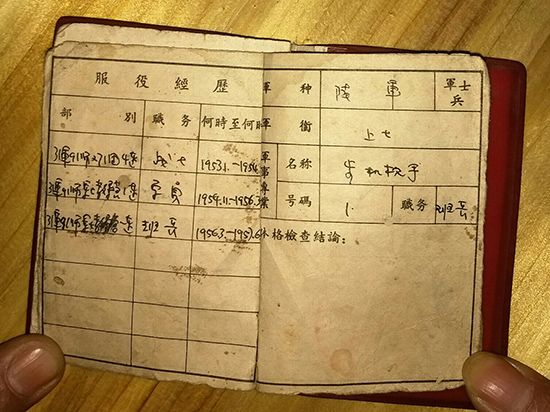 服役經歷
部別 職务 何時至何時
31軍91师271团 战士 1953.1.—1954
31軍91师 学員 1954.11.—1956.3
31軍91师 班長 1956.3—195
軍种 陸軍 軍士兵
軍銜 上士
軍事專業 名称 步机枪手
号碼 1. 職务 班長
体格檢查結論：